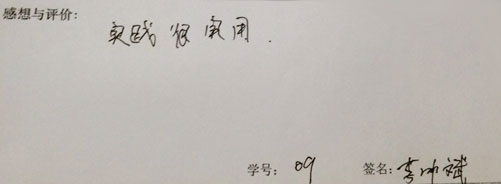 感想与评价:
实践很实用.
学号: 09 签名: 李帅斌